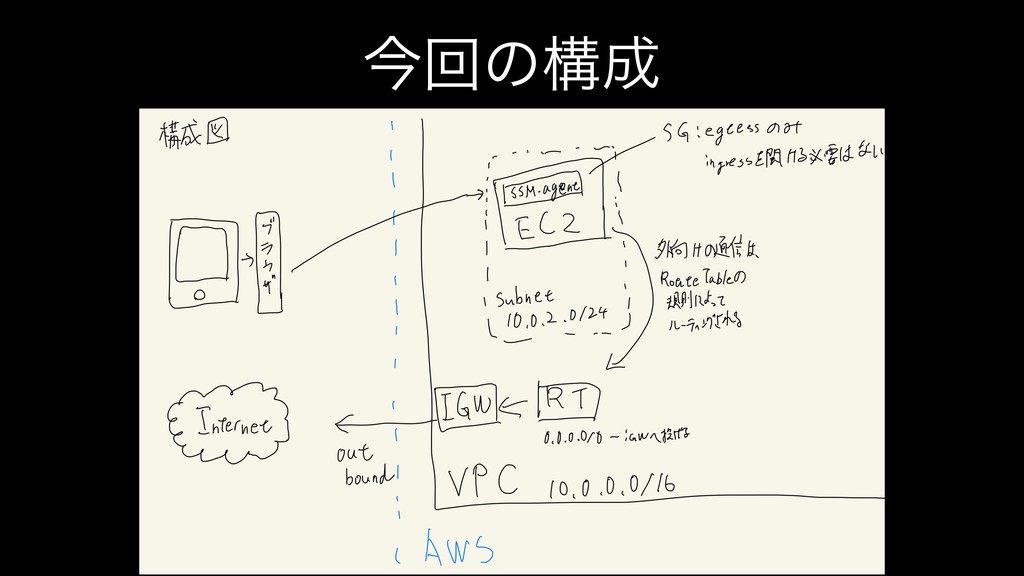 今回の構成
構成図
SG:egress のみ
ingressを開ける必要はない
SSM-agent
EC2
ブラウザ
外向けの通信は、
Route Tableの
規則によって
ルーティングされる
Subnet
10.0.2.0/24
IGW
RT
0.0.0.0/0 ー igwへ投げる
Internet
out
bound
VPC 10.0.0.0/16
AWS